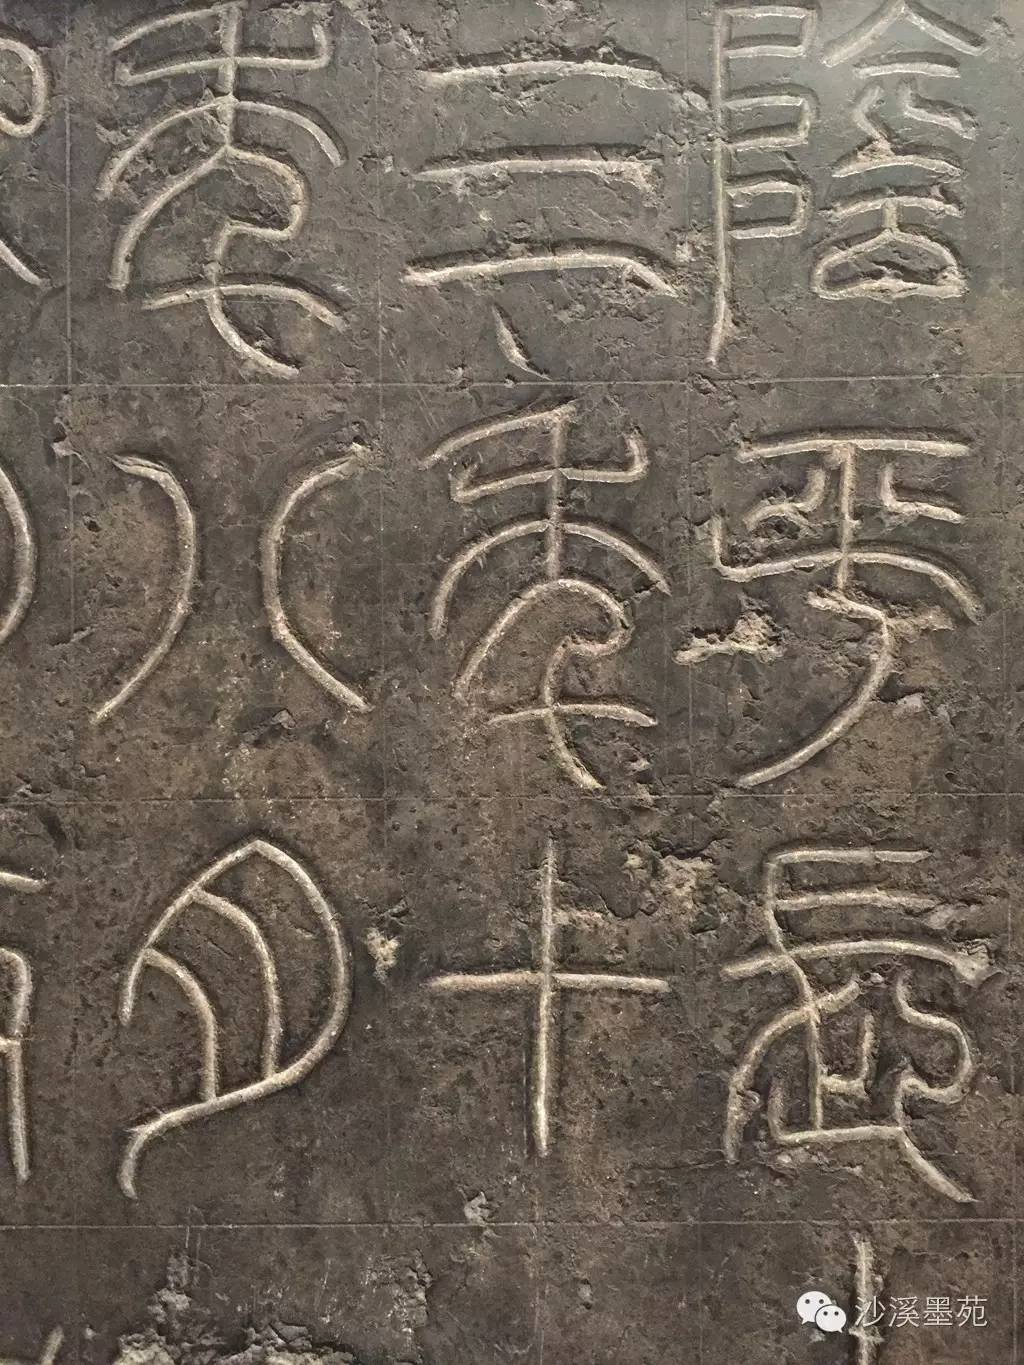 陰平長
三年十
年八月
沙溪墨苑